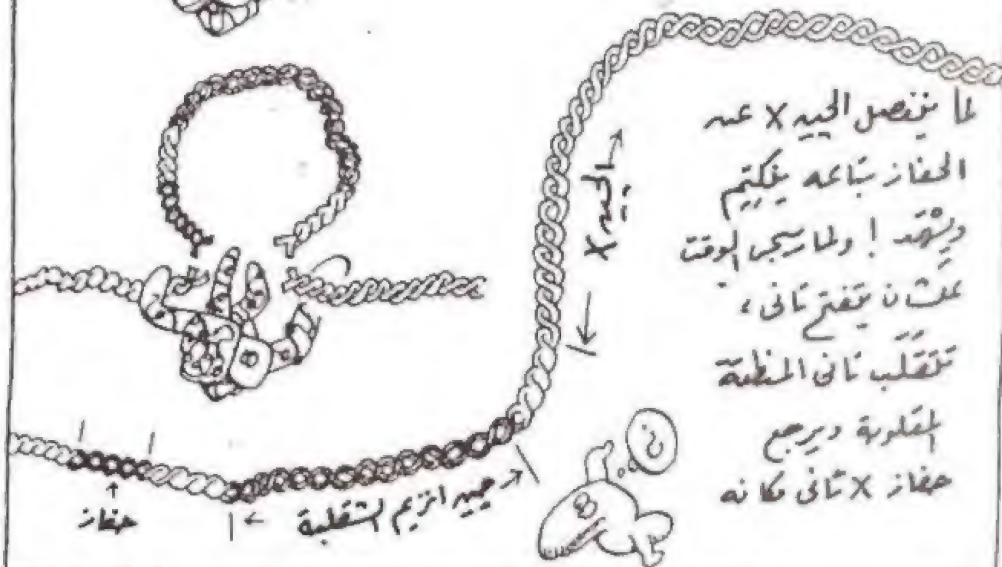 لما ينفصل الجين X عن
الحفاز بتاعه ينكتم
ويتهد ! ولما ييجي الوقت
علشان يتفتح تاني ،
تتقلب تاني المنطقة
المقلوبة ويرجع
حفاز X تاني مكانه
← الجين X →
؟
حفاز
← جين انزيم الشقلبة →